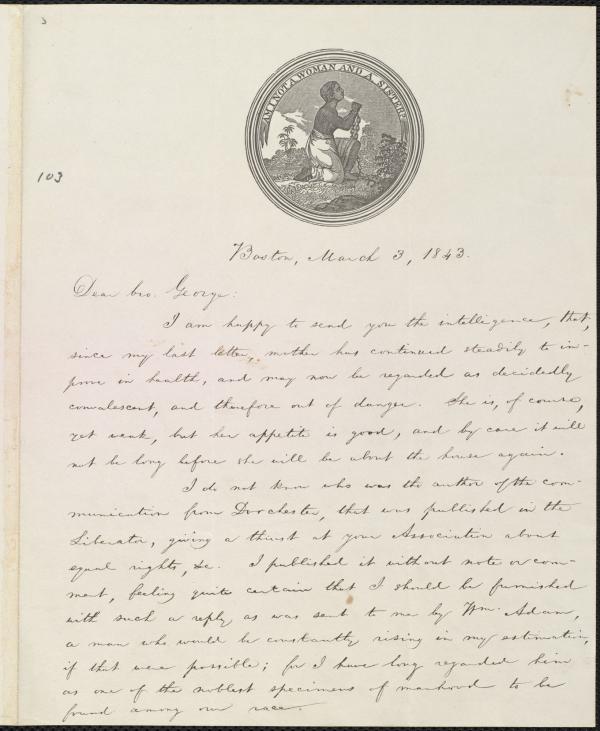 103
AM I NOT A WOMAN AND A SISTER?
Boston, March 3, 1843.
Dear bro. George:
I am happy to send you the intelligence, that,
since my last letter, mother has continued steadily to im-
prove in health, and may now be regarded as decidedly
convalescent, and therefore out of danger. She is, of course,
yet weak, but her appetite is good, and by care it will
not be long before she will be about the house again.
I do not know who was the author of the com-
munication from Dorchester, that was published in the
Liberator, giving a thrust at your Association about
equal rights, &c. I published it without note or com-
ment, feeling quite certain that I should be furnished
with such a reply as was sent to me by Wm. Adam,
a man who would be constantly rising in my estimation,
if that were possible; for I have long regarded him
as one of the noblest specimens of manhood to be
found among our race.